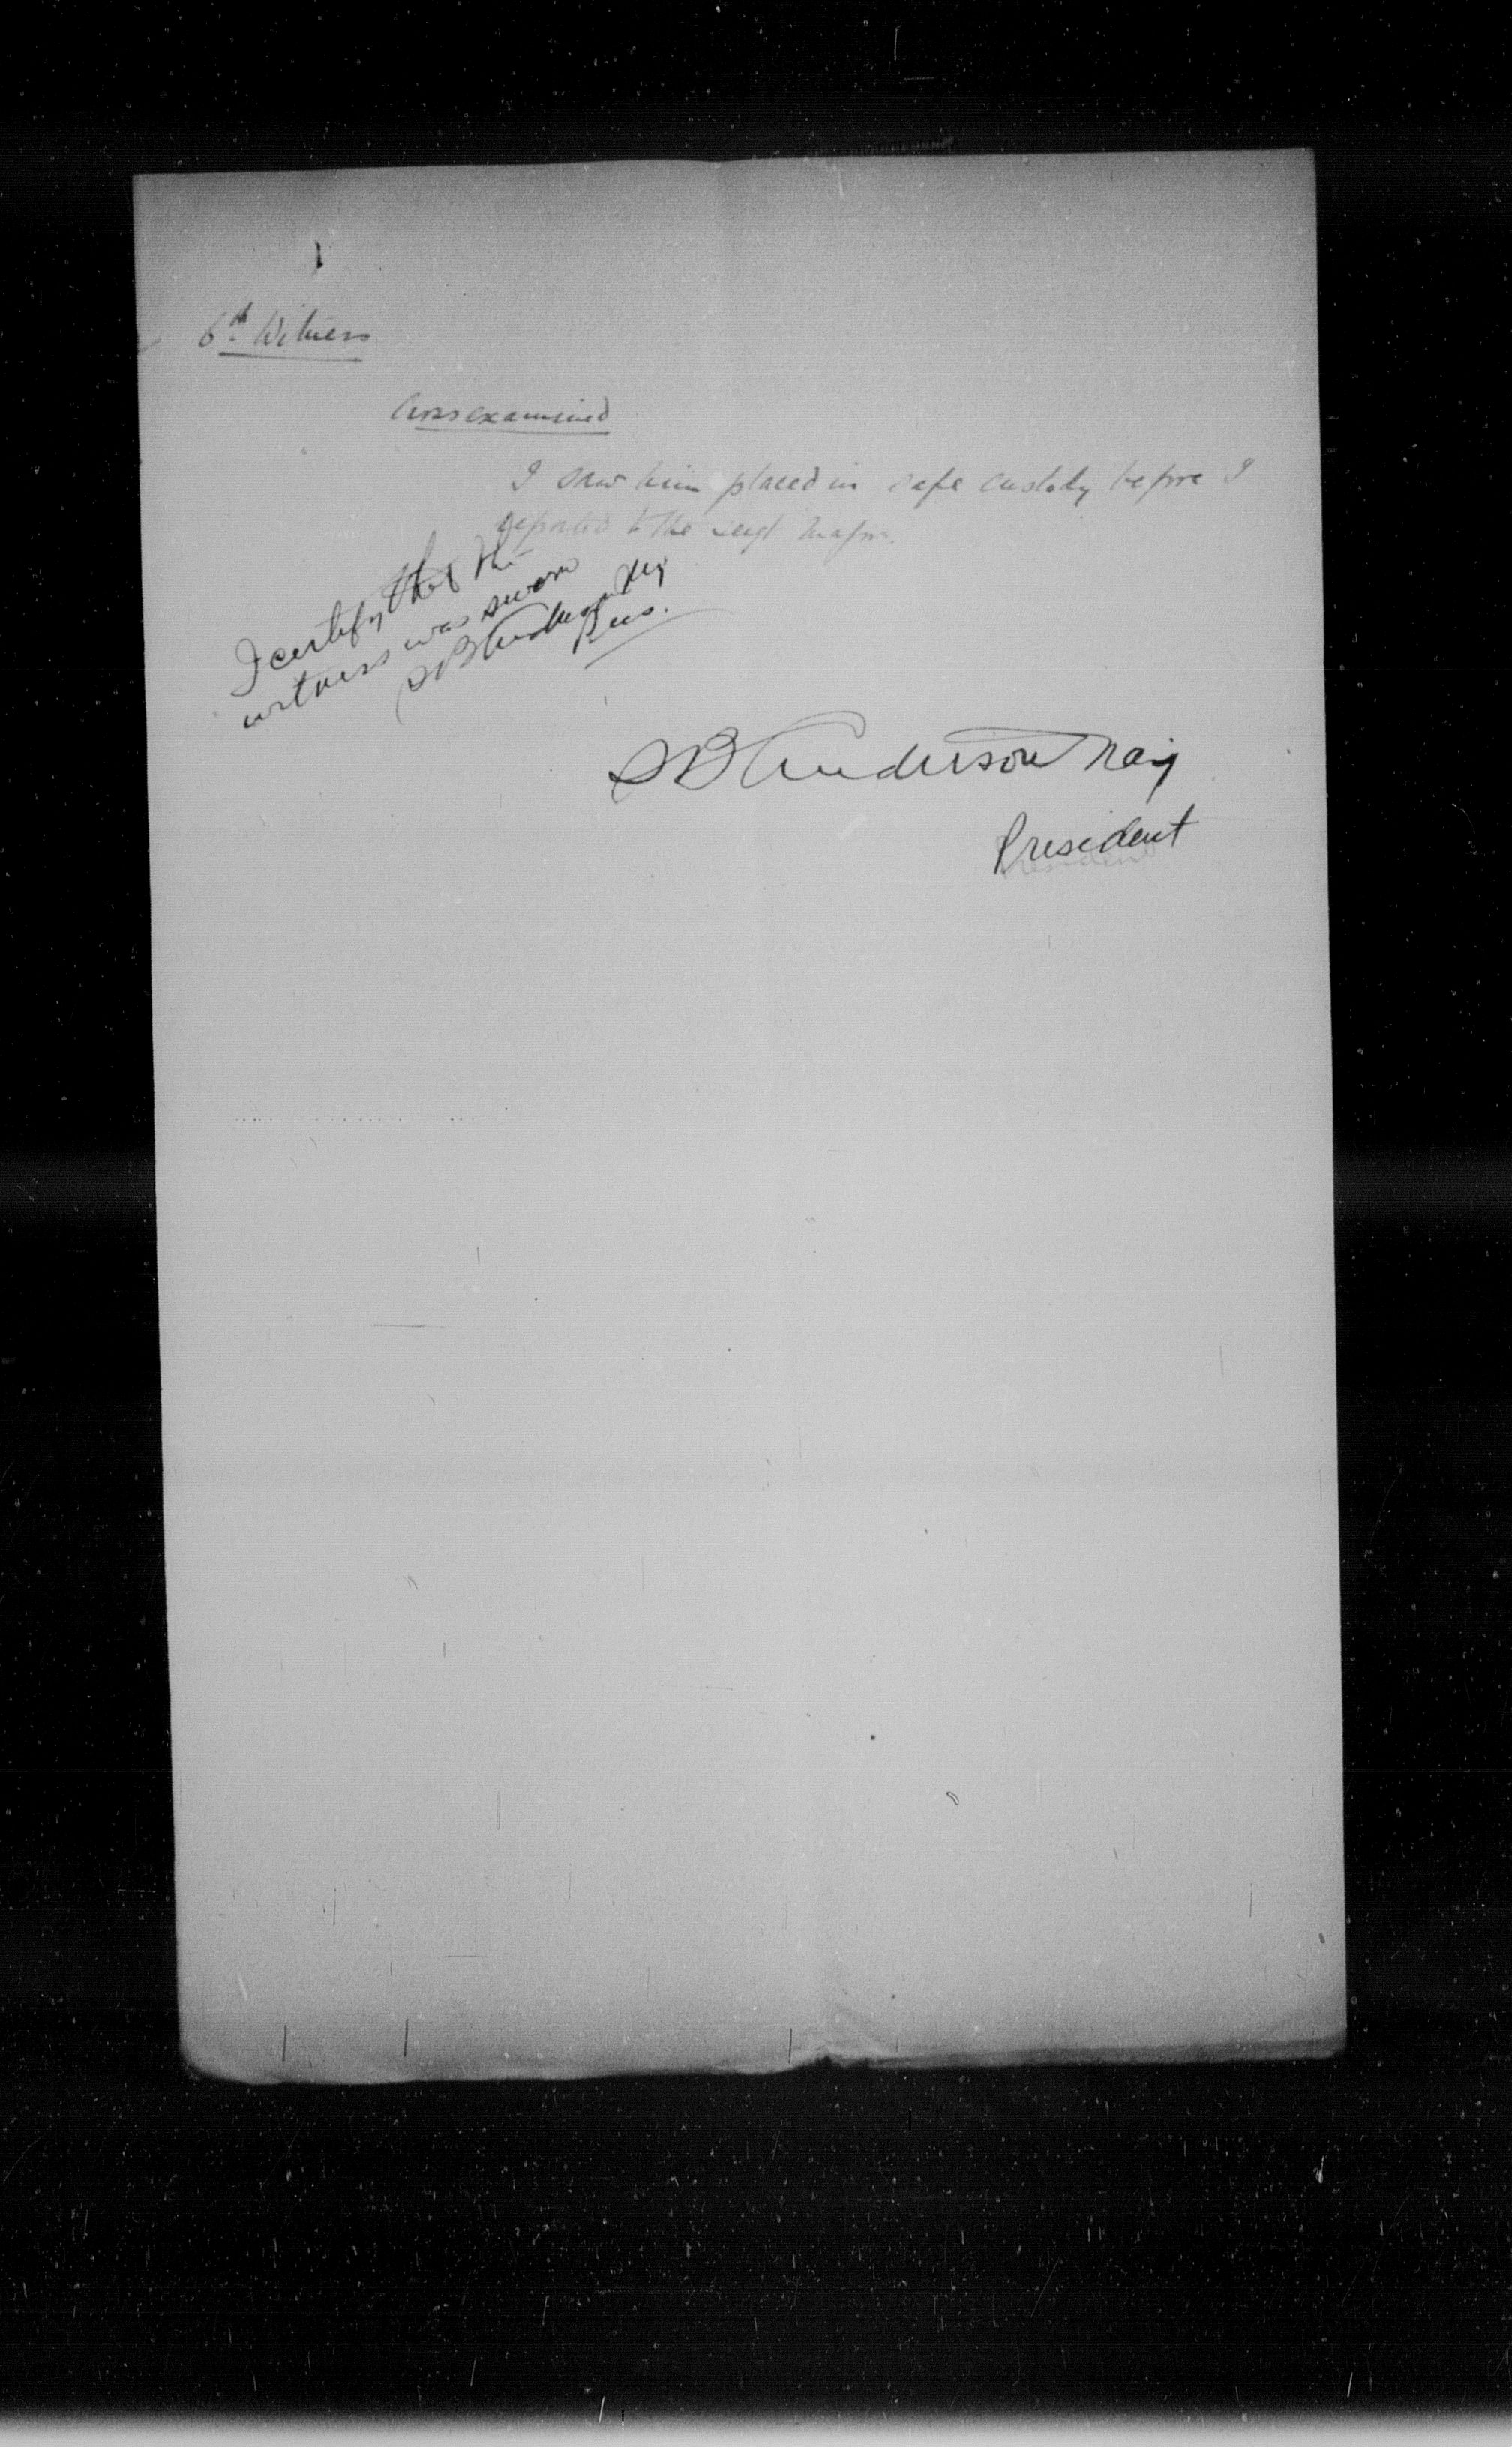 6th Witness
Cross examined
I saw him placed in safe custody before I
reported to the Sergt Major.
I certify that the
witness was sworn
SB Anderson Maj
Pres.
SB Anderson Maj
President